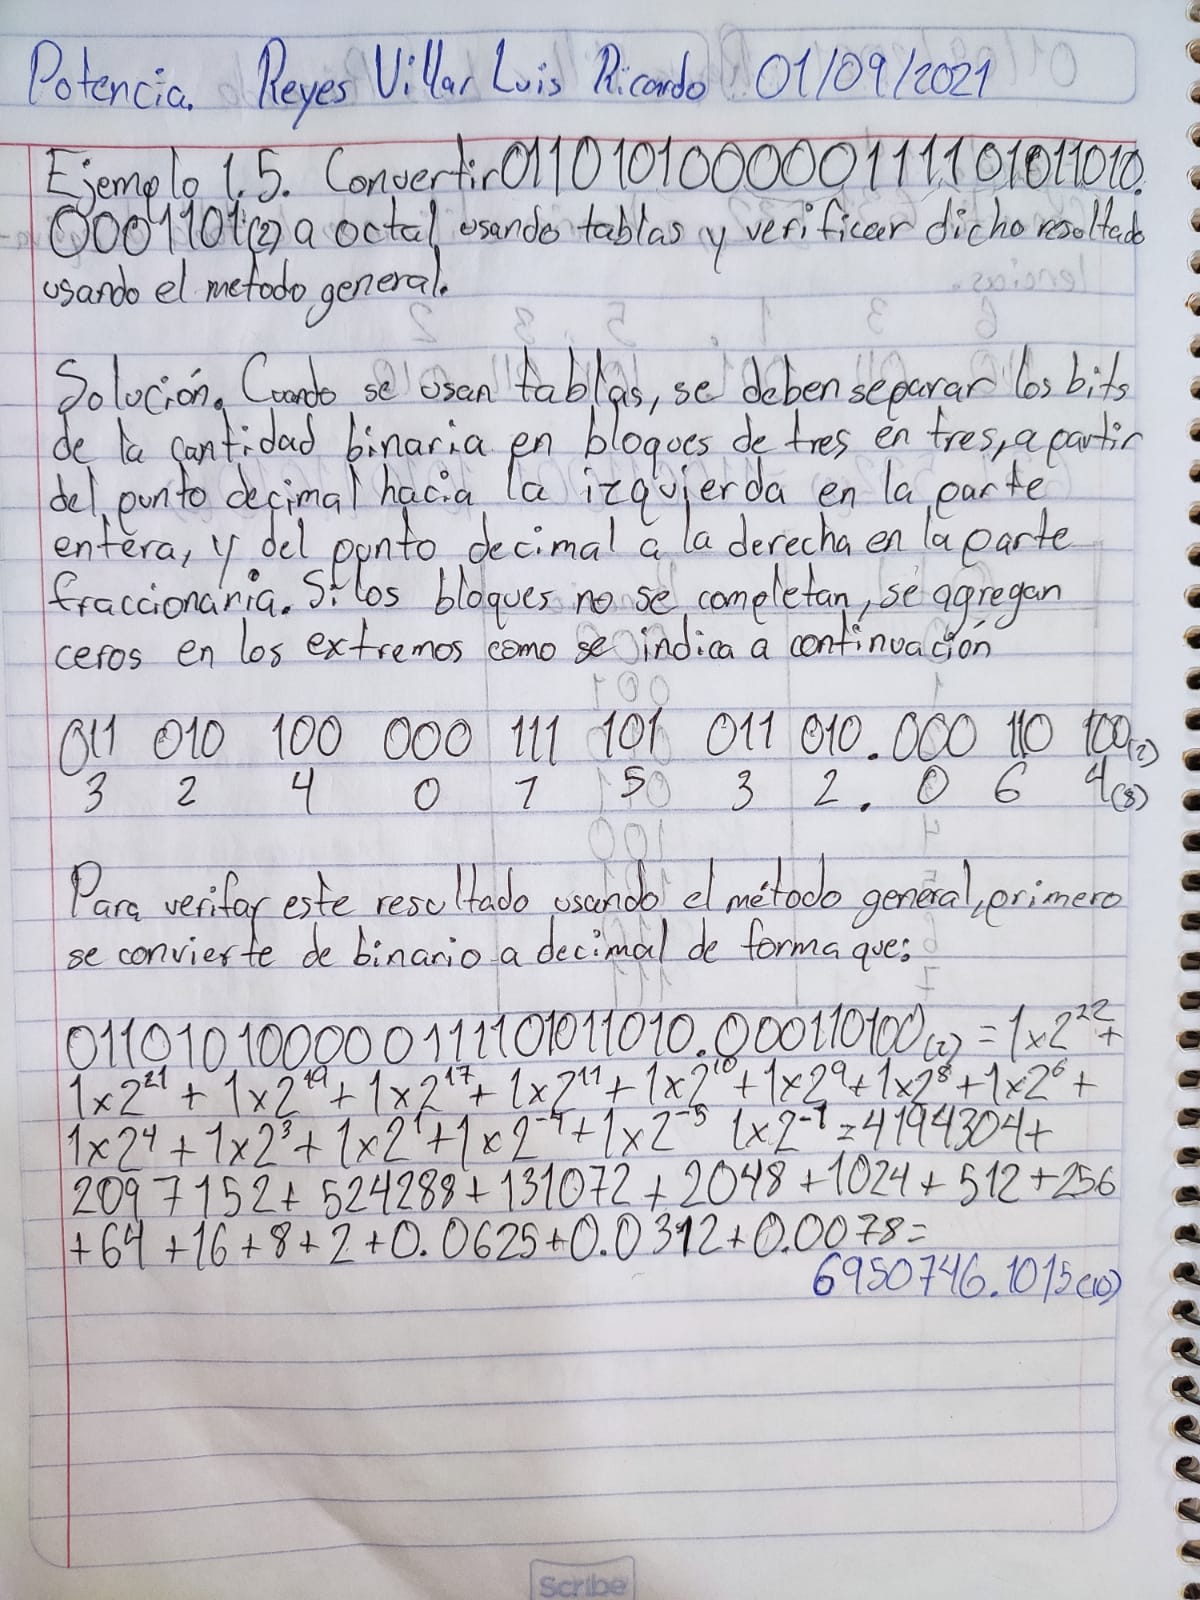 Potencia. Reyes Villar Luis Ricardo 01/09/2021
Ejemplo 1.5. Convertir 011010100000111101011010.
0001101(2) a octal usando tablas y verificar dicho resultado
usando el metodo general.
Solución. Cuando se usan tablas, se deben separar los bits
de la cantidad binaria en bloques de tres en tres, a partir
del punto decimal hacia la izquierda en la parte
entera, y del punto decimal a la derecha en la parte
fraccionaria. Si los bloques no se completan, se agregan
ceros en los extremos como se indica a continuación
011 010 100 000 111 101 011 010.000 110 100(2)
3 2 4 0 7 5 3 2. 0 6 4(8)
Para verifar este resultado usando el método general, primero
se convierte de binario a decimal de forma que:
011010100000111101011010.000110100(2) = 1x2^22 +
1x2^21 + 1x2^19 + 1x2^17 + 1x2^11 + 1x2^10 + 1x2^9 + 1x2^8 + 1x2^6 +
1x2^4 + 1x2^3 + 1x2^1 + 1x2^-4 + 1x2^-5 1x2^-7 = 4194304+
2097152+ 524288+131072+2048+1024+512+256
+64+16+8+2+0.0625+0.0312+0.0078=
6950746.1015(10)
Scribe